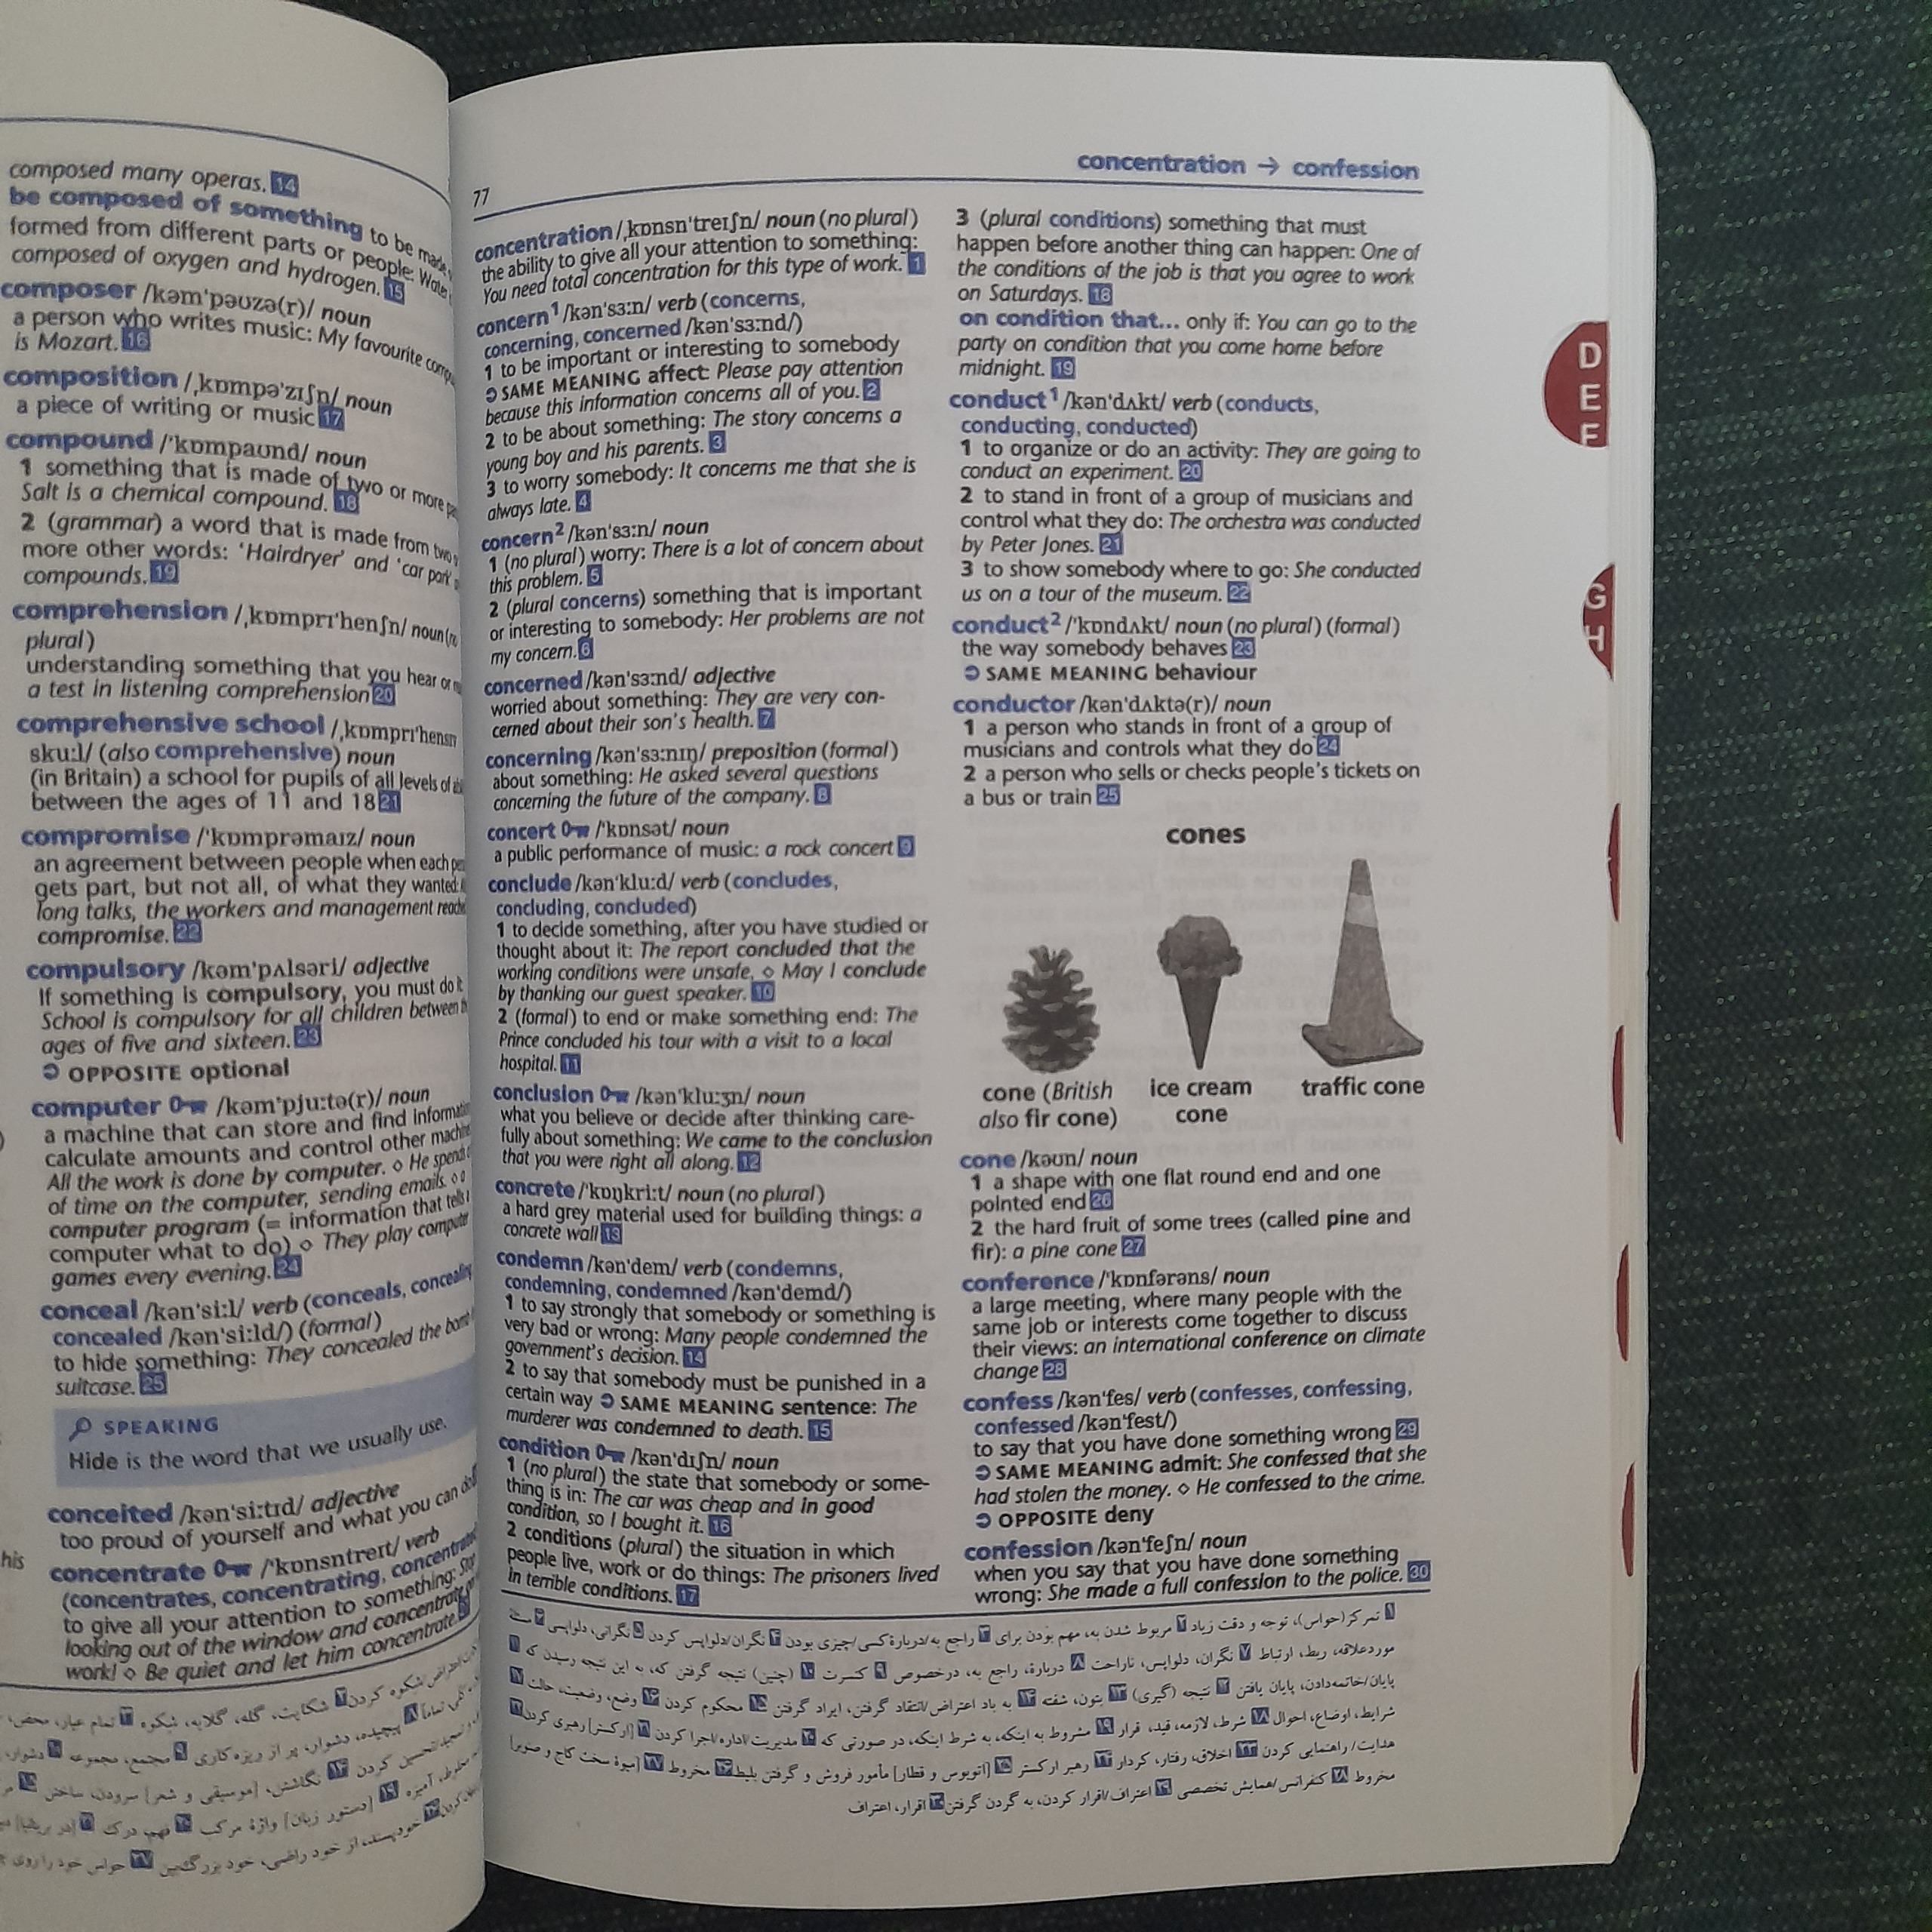 composed many operas. 14
be composed of something to be made
formed from different parts or people: Water
composed of oxygen and hydrogen. 15
composer /kəmˈpəʊzə(r)/ noun
a person who writes music: My favourite
is Mozart. 16
composition /ˌkɒmpəˈzɪʃn/ noun
a piece of writing or music 17
compound /ˈkɒmpaʊnd/ noun
1 something that is made of two or more
Salt is a chemical compound. 18
2 (grammar) a word that is made from two
more other words: ‘Hairdryer’ and ‘car park’
compounds. 19
comprehension /ˌkɒmprɪˈhenʃn/ noun (no
plural)
understanding something that you hear or
a test in listening comprehension 20
comprehensive school /ˌkɒmprɪˈhensɪv
skuːl/ (also comprehensive) noun
(in Britain) a school for pupils of all levels of
between the ages of 11 and 18 21
compromise /ˈkɒmprəmaɪz/ noun
an agreement between people when each
gets part, but not all, of what they wanted:
long talks, the workers and management
compromise. 22
compulsory /kəmˈpʌlsəri/ adjective
If something is compulsory, you must do it
School is compulsory for all children between
ages of five and sixteen. 23
➲ OPPOSITE optional
computer /kəmˈpjuːtə(r)/ noun
a machine that can store and find
calculate amounts and control other
All the work is done by computer. ◇ He spends
of time on the computer, sending emails. ◇
computer program (= information that tells
computer what to do) ◇ They play computer
games every evening. 24
conceal /kənˈsiːl/ verb (conceals, concealing
concealed /kənˈsiːld/) (formal)
to hide something: They concealed the
suitcase. 25
SPEAKING
Hide is the word that we usually use.
conceited /kənˈsiːtɪd/ adjective
too proud of yourself and what you can do
concentrate /ˈkɒnsntreɪt/ verb
(concentrates, concentrating, concentrated
to give all your attention to something: Stop
looking out of the window and concentrate
work! ◇ Be quiet and let him concentrate.
77
concentration → confession
concentration /ˌkɒnsnˈtreɪʃn/ noun (no plural)
the ability to give all your attention to something:
You need total concentration for this type of work. 1
concern¹ /kənˈsɜːn/ verb (concerns,
concerning, concerned /kənˈsɜːnd/)
1 to be important or interesting to somebody
➲ SAME MEANING affect: Please pay attention
because this information concerns all of you. 2
2 to be about something: The story concerns a
young boy and his parents. 3
3 to worry somebody: It concerns me that she is
always late. 4
concern² /kənˈsɜːn/ noun
1 (no plural) worry: There is a lot of concern about
this problem. 5
2 (plural concerns) something that is important
or interesting to somebody: Her problems are not
my concern. 6
concerned /kənˈsɜːnd/ adjective
worried about something: They are very con-
cerned about their son's health. 7
concerning /kənˈsɜːnɪŋ/ preposition (formal)
about something: He asked several questions
concerning the future of the company. 8
concert /ˈkɒnsət/ noun
a public performance of music: a rock concert 9
conclude /kənˈkluːd/ verb (concludes,
concluding, concluded)
1 to decide something, after you have studied or
thought about it: The report concluded that the
working conditions were unsafe. ◇ May I conclude
by thanking our guest speaker. 10
2 (formal) to end or make something end: The
Prince concluded his tour with a visit to a local
hospital. 11
conclusion /kənˈkluːʒn/ noun
what you believe or decide after thinking care-
fully about something: We came to the conclusion
that you were right all along. 12
concrete /ˈkɒŋkriːt/ noun (no plural)
a hard grey material used for building things: a
concrete wall 13
condemn /kənˈdem/ verb (condemns,
condemning, condemned /kənˈdemd/)
1 to say strongly that somebody or something is
very bad or wrong: Many people condemned the
government's decision. 14
2 to say that somebody must be punished in a
certain way ➲ SAME MEANING sentence: The
murderer was condemned to death. 15
condition /kənˈdɪʃn/ noun
1 (no plural) the state that somebody or some-
thing is in: The car was cheap and in good
condition, so I bought it. 16
2 conditions (plural) the situation in which
people live, work or do things: The prisoners lived
in terrible conditions. 17
3 (plural conditions) something that must
happen before another thing can happen: One of
the conditions of the job is that you agree to work
on Saturdays. 18
on condition that... only if: You can go to the
party on condition that you come home before
midnight. 19
conduct¹ /kənˈdʌkt/ verb (conducts,
conducting, conducted)
1 to organize or do an activity: They are going to
conduct an experiment. 20
2 to stand in front of a group of musicians and
control what they do: The orchestra was conducted
by Peter Jones. 21
3 to show somebody where to go: She conducted
us on a tour of the museum. 22
conduct² /ˈkɒndʌkt/ noun (no plural) (formal)
the way somebody behaves 23
➲ SAME MEANING behaviour
conductor /kənˈdʌktə(r)/ noun
1 a person who stands in front of a group of
musicians and controls what they do 24
2 a person who sells or checks people's tickets on
a bus or train 25
cones
cone (British
also fir cone)
ice cream
cone
traffic cone
cone /kəʊn/ noun
1 a shape with one flat round end and one
pointed end 26
2 the hard fruit of some trees (called pine and
fir): a pine cone 27
conference /ˈkɒnfərəns/ noun
a large meeting, where many people with the
same job or interests come together to discuss
their views: an international conference on climate
change 28
confess /kənˈfes/ verb (confesses, confessing,
confessed /kənˈfest/)
to say that you have done something wrong 29
➲ SAME MEANING admit: She confessed that she
had stolen the money. ◇ He confessed to the crime.
➲ OPPOSITE deny
confession /kənˈfeʃn/ noun
when you say that you have done something
wrong: She made a full confession to the police. 30
۱ تمرکز(حواس)، توجه و دقت زیاد ۲ مربوط شدن به، مهم بودن برای ۳ راجع به/دربارهٔ کسی/چیزی بودن ۴ نگران/دلواپس کردن ۵ نگرانی، دلواپسی ۶
موردعلاقه، ربط، ارتباط ۷ نگران، دلواپس، ناراحت ۸ دربارهٔ، راجع به، درخصوص ۹ کنسرت ۱۰ (چنین) نتیجه گرفتن که، به این نتیجه رسیدن که ۱۱
پایان/خاتمه‌دادن، پایان یافتن ۱۲ نتیجه (گیری) ۱۳ بتون، شفته ۱۴ به باد اعتراض/انتقاد گرفتن، ایراد گرفتن ۱۵ محکوم کردن ۱۶ وضع، وضعیت، حالت ۱۷
شرایط، اوضاع، احوال ۱۸ شرط، لازمه، قید، قرار ۱۹ مشروط به اینکه، به شرط اینکه، در صورتی که ۲۰ مدیریت/اداره/اجرا کردن ۲۱ [ارکستر] رهبری کردن ۲۲
هدایت/ راهنمایی کردن ۲۳ اخلاق، رفتار، کردار ۲۴ رهبر ارکستر ۲۵ [اتوبوس و قطار] مأمور فروش و گرفتن بلیط ۲۶ مخروط ۲۷ [میوهٔ سخت کاج و صنوبر]
مخروط ۲۸ کنفرانس/همایش تخصصی ۲۹ اعتراف/اقرار کردن، به گردن گرفتن ۳۰ اقرار، اعتراف
D
E
F
G
H